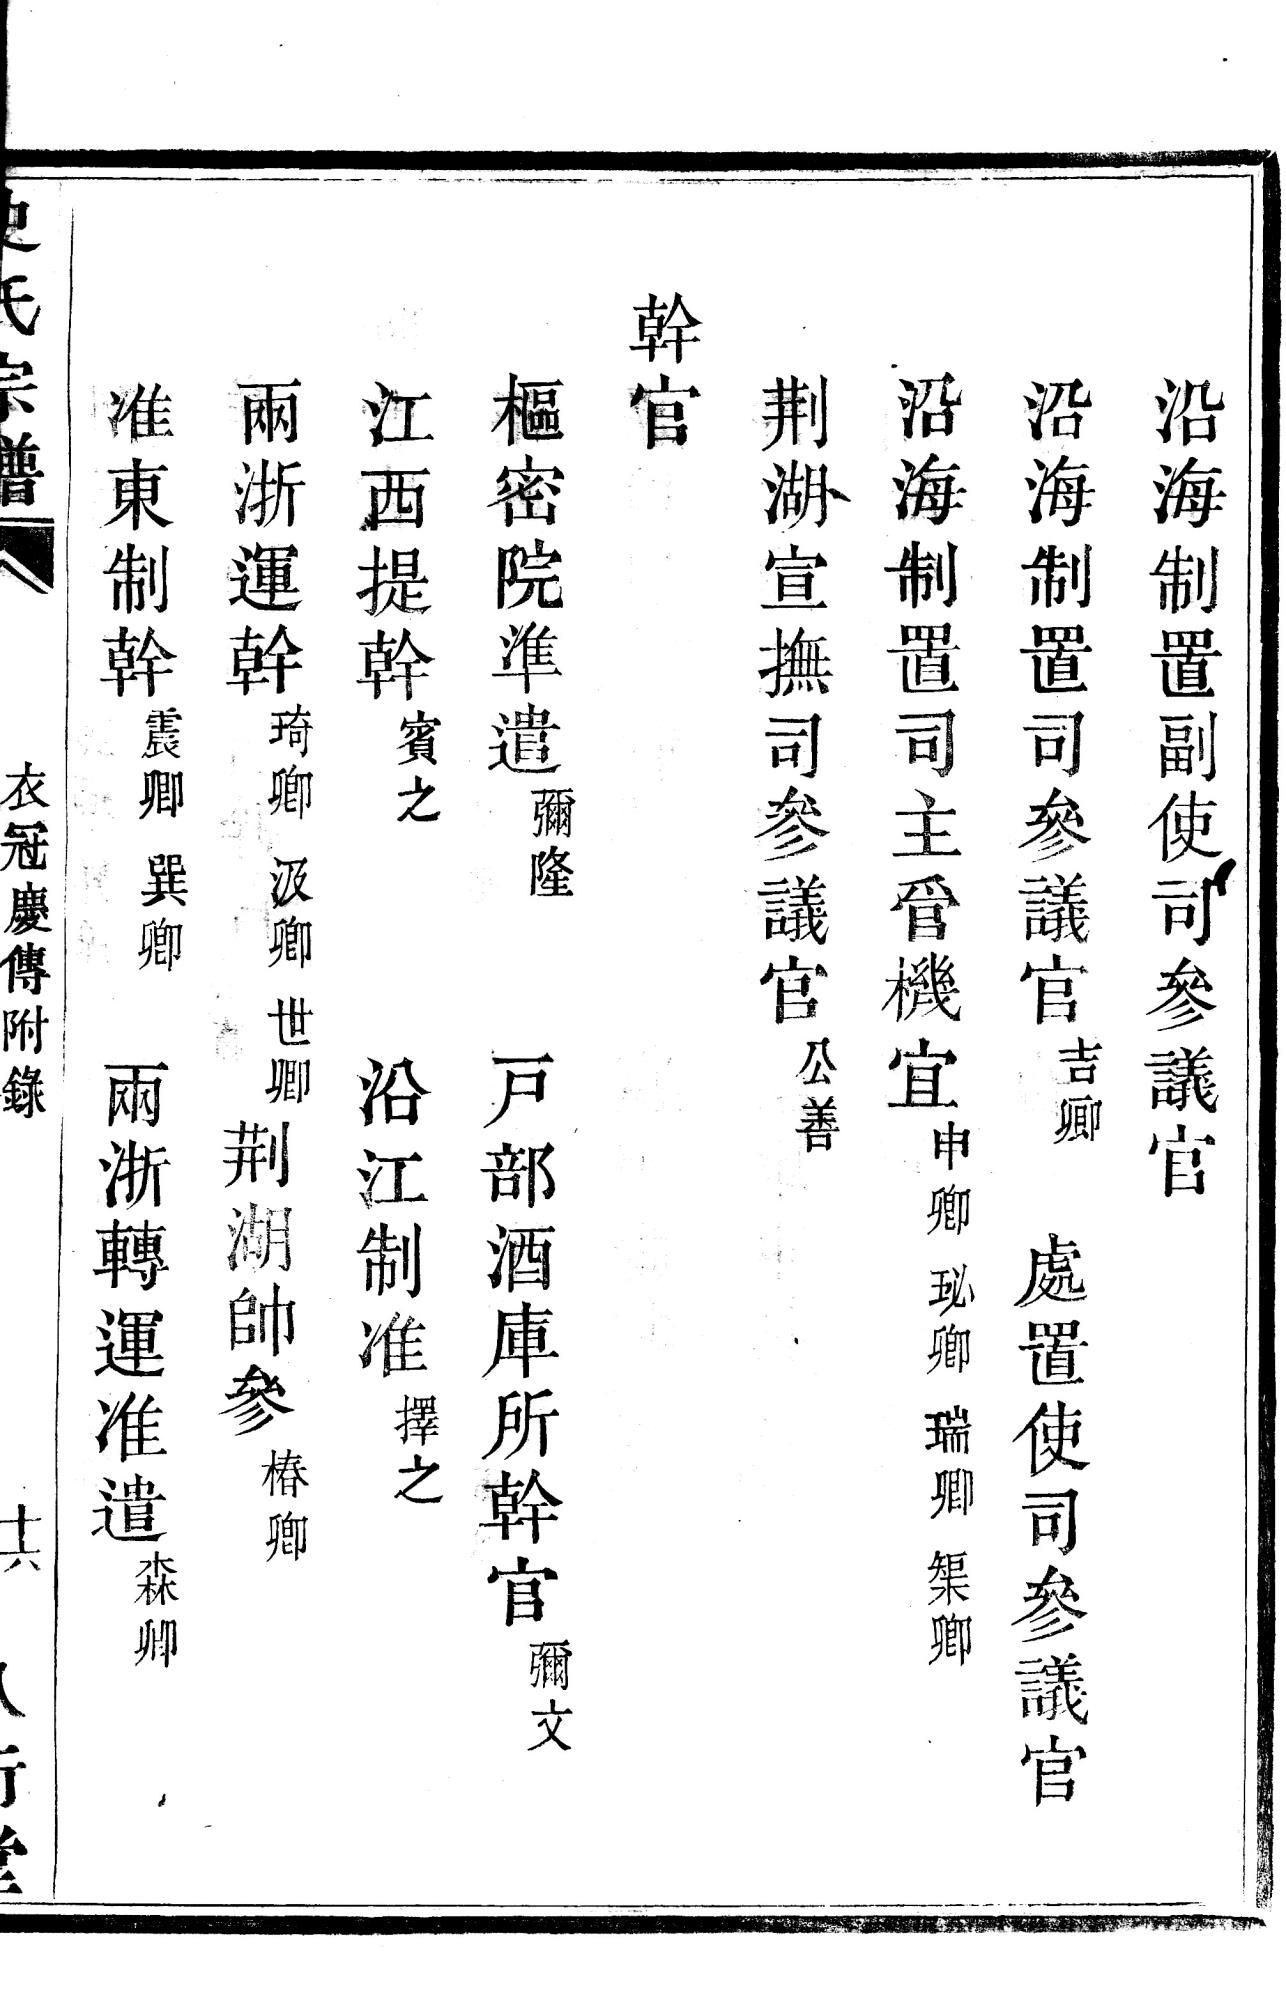 沿海制置副使司參議官
沿海制置司參議官吉卿　處置使司參議官
沿海制置司主管機宜申卿　珌卿　瑞卿　榘卿
荆湖宣撫司參議官公善
幹官
樞密院準遣彌隆　戸部酒庫所幹官彌文
江西提幹賓之　沿江制准擇之
兩浙運幹琦卿　汲卿　世卿　荆湖帥參椿卿
准東制幹震卿　巽卿　兩浙轉運准遣森卿
史氏宗譜　衣冠慶傳附錄　十六　八行堂